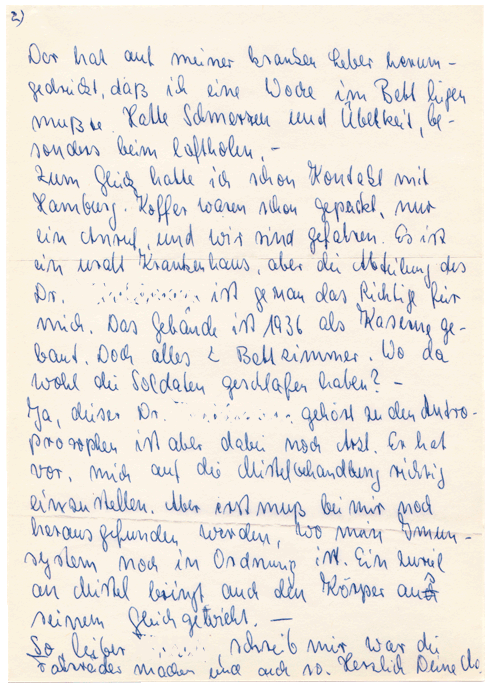 2)
Dor hat auf meiner kranken Leber herum-
gedrückt, daß ich eine Woche im Bett liegen
mußte. Hatte Schmerzen und Übelkeit, be-
sonders beim Luftholen. –
Zum Glück hatte ich schon Kontakt mit
Hamburg. Koffer waren schon gepackt, nur
ein Anruf, und wir sind gefahren. Es ist
ein uralt Krankenhaus, aber die Abteilung des
Dr. ist genau das Richtige für
mich. Das Gebäude ist 1936 als Kaserne ge-
baut. Doch alles 2 Bettzimmer. Wo da
wohl die Soldaten geschlafen haben? –
Ja, dieser Dr. gehört zu den Antro-
prosophen ist aber dabei noch Arzt. Er hat
vor, mich auf die Mistelbehandlung richtig
einzustellen. Aber erst muß bei mir noch
herausgefunden werden, wo mein Immun-
system noch in Ordnung ist. Ein zuviel
an Mistel bringt auch den Körper aus
seinem Gleichgewicht. –
So, lieber , schreib mir, was die
Fahrräder machen und auch so. Herzlich Deine